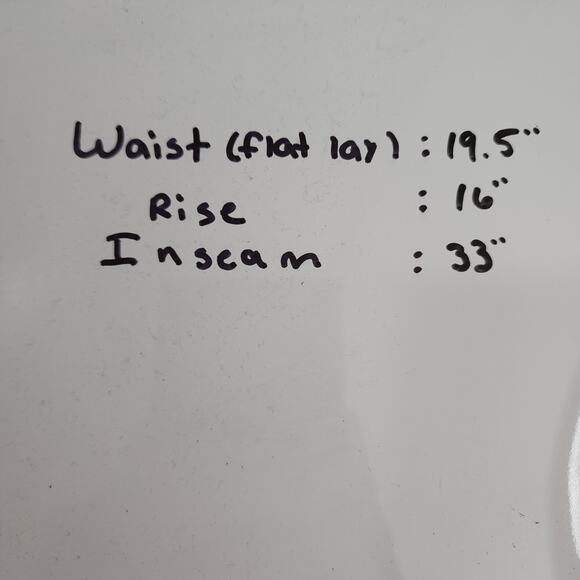 Waist (flat lay) : 19.5"
Rise : 16"
Inseam : 33"